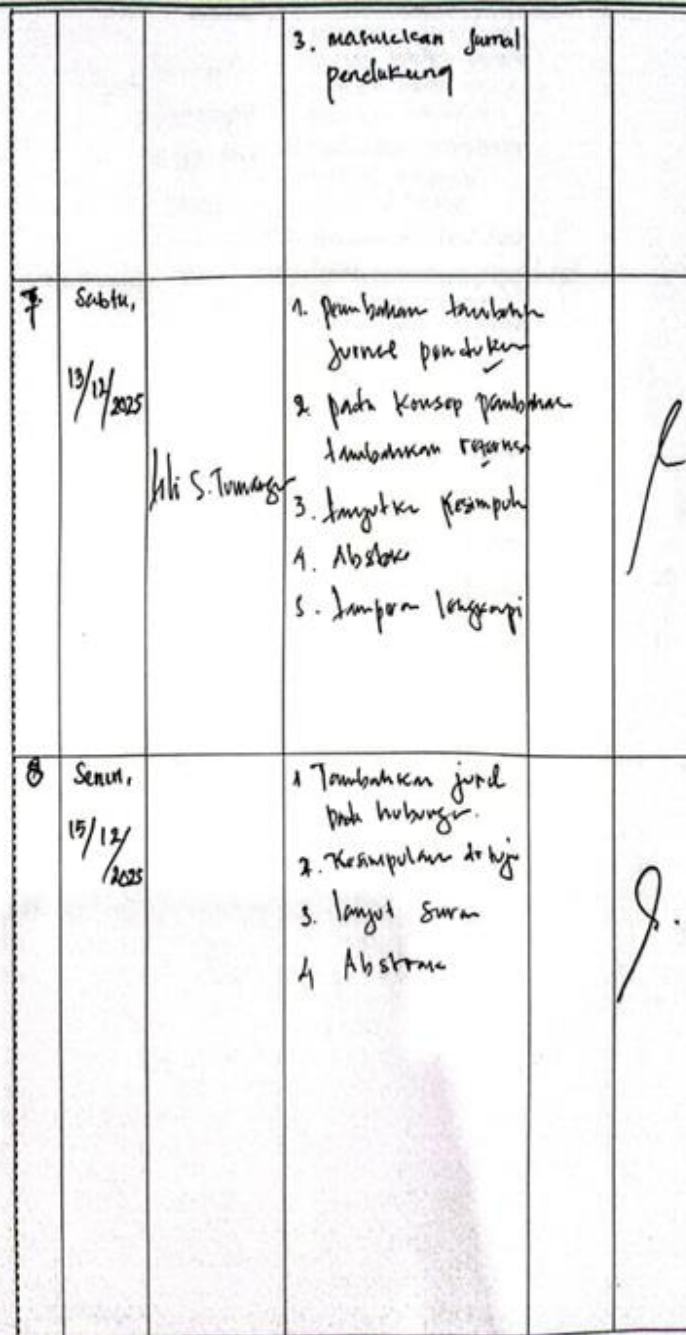 3. masukkan jurnal
pendukung
7
Sabtu,
13/12/2025
S. Tumangger
1. pembahasan tambahan
jurnal pendukung
2. pada konsep pembahasan
tambahkan referensi
3. lanjutkan kesimpulan
4. Abstrak
5. lampiran lengkapi
8
Senin,
15/12/2025
1 Tambahkan jurnal
pada hubungan.
2. Kesimpulan
3. lanjut saran
4 Abstrak